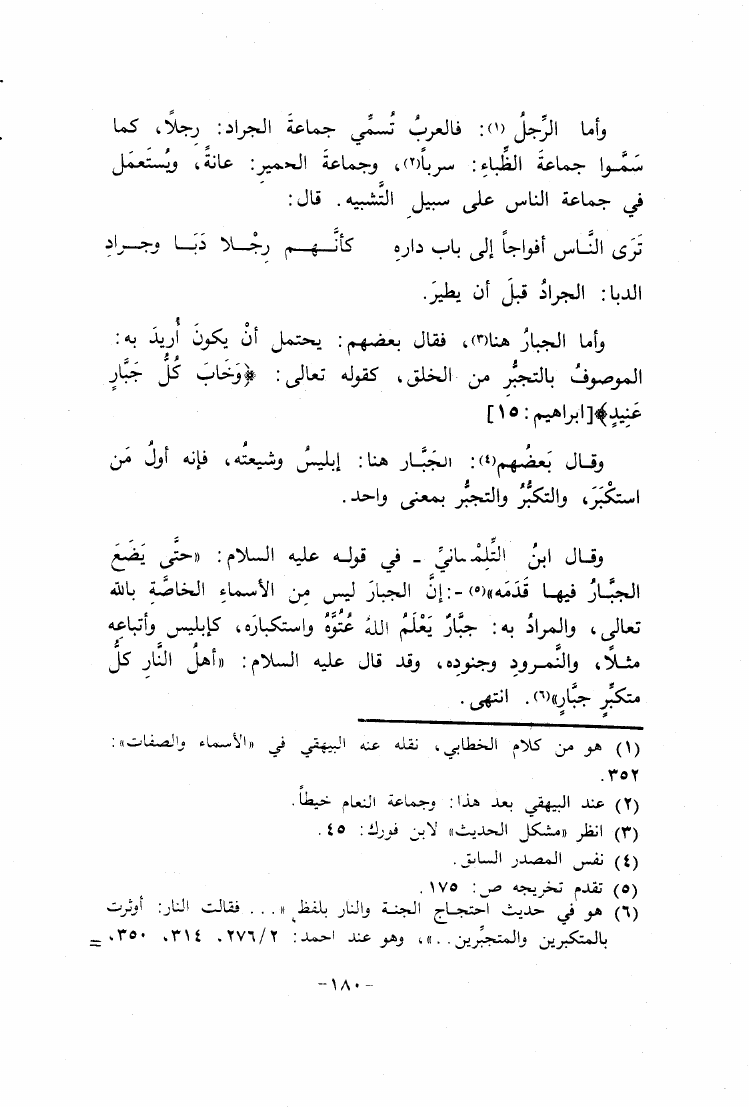 وأما الرِّجلُ (١): فالعربُ تُسمِّي جماعةَ الجراد: رِجلًا، كما
سَمَّـوا جماعةَ الظِّباء: سرباً(٢)، وجماعةَ الحمير: عانةً، ويُستَعمَل
في جماعة الناس على سبيل التَّشبيه. قال:
تَرَى النَّـاس أفواجاً إلى باب دارهِ كأنَّـهــم رِجْـــلا دَبَـا وجــرادِ
الدبا: الجرادُ قبلَ أن يطيرَ.
وأما الجبارُ هنا(٣)، فقال بعضهم: يحتمل أنْ يكونَ أُريدَ به:
الموصوفُ بالتجبُّر من الخلق، كقوله تعالى: ﴿وَخَابَ كُلُّ جَبَّارٍ
عَنِيدٍ﴾[ابراهيم: ١٥]
وقـال بَعضُهم(٤): الجَبَّـار هنا: إبليسُ وشيعتُه، فإنه أولُ مَن
استكْبَرَ، والتكبُّرُ والتجبُّر بمعنى واحد.
وقـال ابنُ التِّلِمْـسانيِّ - في قولـه عليه السلام: «حتَّى يَضَعَ
الجبَّـارُ فيهـا قَدَمَه»(٥)-: إنَّ الجبارَ ليس مِن الأسماءِ الخاصَّةِ بالله
تعالى، والمرادُ به: جبَّارٌ يَعْلَمُ اللهُ عُتُوَّهُ واستكبارَه، كإبليس وأتباعِه
مثـلاً، والنَّمـرودِ وجنودِه، وقد قال عليه السلام: «أهلُ النَّارِ كلُّ
متكبِّرٍ جبَّارٍ»(٦). انتهى.
(١) هو من كلام الخطابي، نقله عنه البيهقي في «الأسماء والصفات»:
٣٥٢.
(٢) عند البيهقي بعد هذا: وجماعة النعام خيطاً.
(٣) انظر «مشكل الحديث» لابن فورك: ٤٥.
(٤) نفس المصدر السابق.
(٥) تقدم تخريجه ص: ١٧٥.
(٦) هو في حديث احتجـاج الجنـة والنار بلفظ «... فقالت النار: أوثرت
بالمتكبرين والمتجبِّرين..»، وهو عند احمد: ٢/ ٢٧٦، ٣١٤، ٣٥٠، =
-١٨٠-